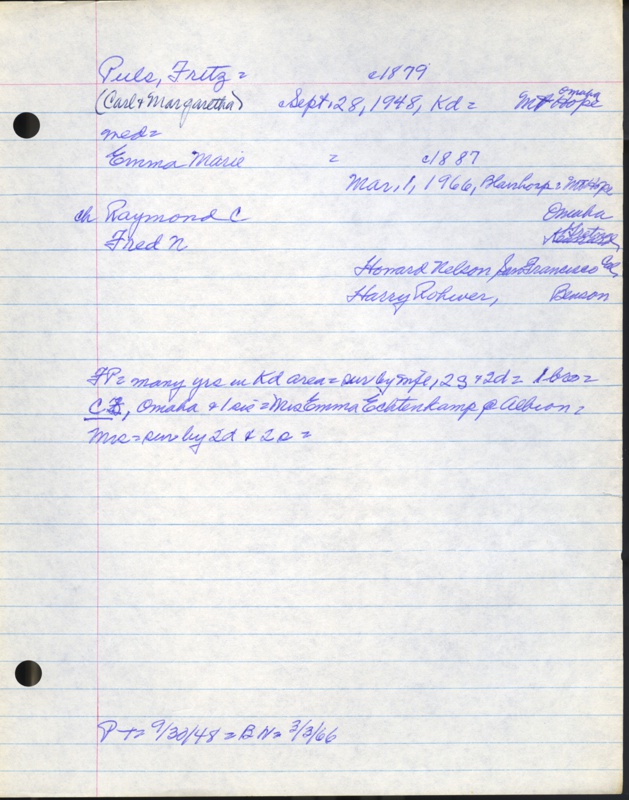 Puls, Fritz = c1879
(Carl & Margaretha) Sept. 28, 1948, Kd = Mt Hope Omaha
med =
Emma Marie = c1887
Mar, 1, 1966, Blairhosp = Mt Hope
ch Raymond C Omaha
Fred N
Howard Nelson San Francisco Cal,
Harry Rohwer, Benson
FP = many yrs in Kd area = sur by wife, 2s & 2d = 1 bro =
C, Omaha & 1 sis = Mrs Emma Echtenkamp @ Albion =
Mrs = sur by 2d & 2s =
P += 9/30/48 = BN = 3/3/66